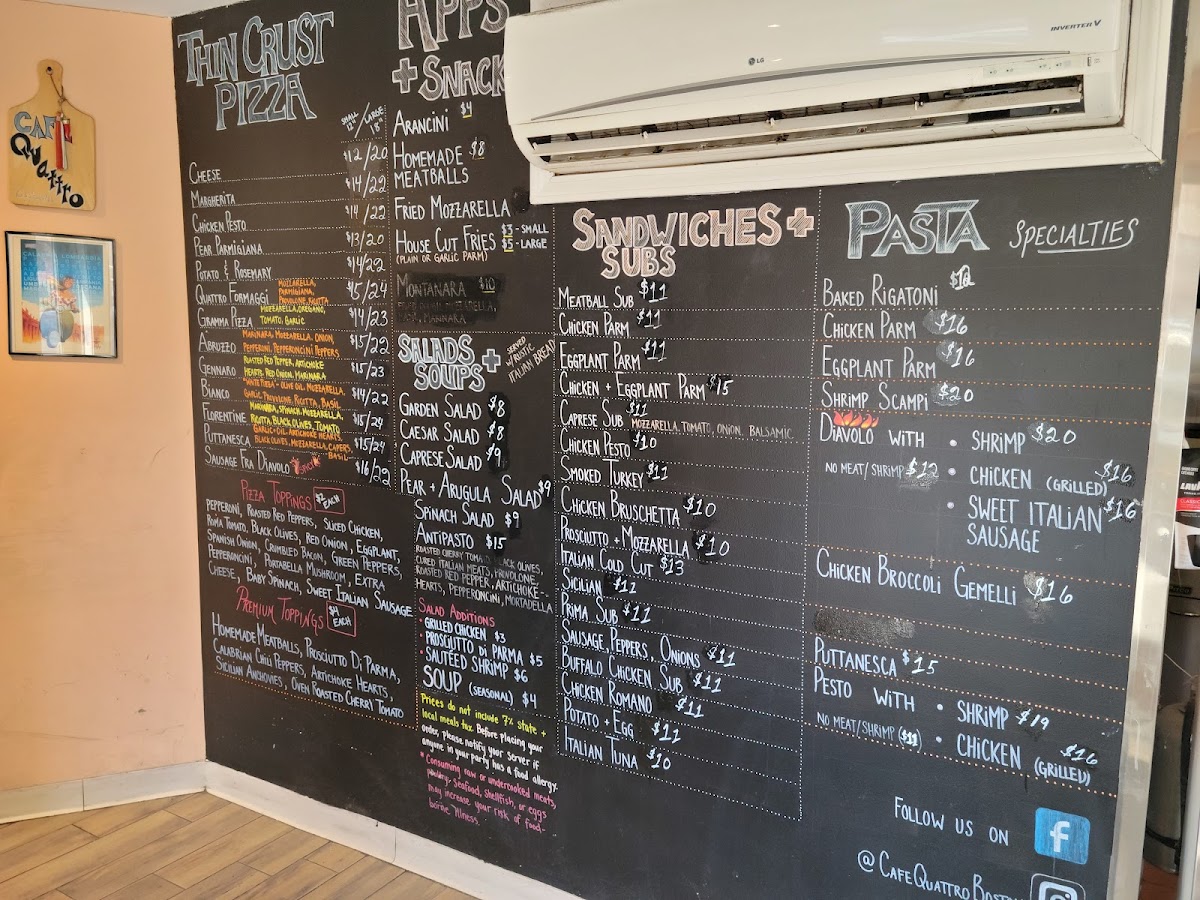 CAFÉ
Quattro
THIN CRUST
PIZZA
SMALL 12" / LARGE 18"
CHEESE $12/20
MARGHERITA $14/22
CHICKEN PESTO $14/22
PEAR PARMIGIANA $13/20
POTATO & ROSEMARY $14/22
QUATTRO FORMAGGI MOZZARELLA, PARMIGIANA, PROVOLONE, RICOTTA $15/24
GRAMMA PIZZA MOZZARELLA, OREGANO, TOMATO, GARLIC $14/23
ABRUZZO MARINARA, MOZZARELLA, ONION, PEPPERONI, PEPPERONCINI PEPPERS $15/22
GENNARO ROASTED RED PEPPER, ARTICHOKE HEARTS, RED ONION, MARINARA $15/23
BIANCO WHITE PIZZA - OLIVE OIL, MOZZARELLA, GARLIC, PROVOLONE, RICOTTA, BASIL $14/22
FLORENTINE MARINARA, SPINACH, MOZZARELLA, RICOTTA, BLACK OLIVES, TOMATO $15/24
PUTTANESCA GARLIC + OIL, ARTICHOKE HEARTS, BLACK OLIVES, MOZZARELLA, CAPERS, BASIL $15/24
SAUSAGE FRA DIAVOLO SPICY $16/22
PIZZA TOPPINGS $2 EACH
PEPPERONI, ROASTED RED PEPPERS, SLICED CHICKEN,
ROMA TOMATO, BLACK OLIVES, RED ONION, EGGPLANT,
SPANISH ONION, CRUMBLED BACON, GREEN PEPPERS,
PEPPERONCINI, PORTABELLA MUSHROOM, EXTRA
CHEESE, BABY SPINACH, SWEET ITALIAN SAUSAGE
PREMIUM TOPPINGS EACH
HOMEMADE MEATBALLS, PROSCIUTTO DI PARMA,
CALABRIAN CHILI PEPPERS, ARTICHOKE HEARTS,
SICILIAN ANCHOVIES, OVEN ROASTED CHERRY TOMATO
APPS
+ SNACK
ARANCINI $4
HOMEMADE $8
MEATBALLS
FRIED MOZZARELLA
HOUSE CUT FRIES $3 - SMALL
$5 - LARGE
(PLAIN OR GARLIC PARM)
MONTANARA $10
MARINARA
SALADS +
SOUPS
SERVED
W/ RUSTIC
ITALIAN BREAD
GARDEN SALAD $8
CAESAR SALAD $8
CAPRESE SALAD $9
PEAR + ARUGULA SALAD $9
SPINACH SALAD $9
ANTIPASTO $15
ROASTED CHERRY TOMATO, BLACK OLIVES,
CURED ITALIAN MEATS, PROVOLONE,
ROASTED RED PEPPER, ARTICHOKE
HEARTS, PEPPERONCINI, MORTADELLA
SALAD ADDITIONS
• GRILLED CHICKEN $3
• PROSCIUTTO DI PARMA $5
• SAUTÉED SHRIMP $6
SOUP (SEASONAL) $4
Prices do not include 7% state +
local meals tax. Before placing your
order, please notify your server if
anyone in your party has a food allergy.
* Consuming raw or undercooked meats,
poultry, seafood, shellfish, or eggs
may increase your risk of food-
borne illness.
SANDWICHES +
SUBS
MEATBALL SUB $11
CHICKEN PARM $11
EGGPLANT PARM $11
CHICKEN + EGGPLANT PARM $15
CAPRESE SUB $11 MOZZARELLA, TOMATO, ONION, BALSAMIC
CHICKEN PESTO $10
SMOKED TURKEY $11
CHICKEN BRUSCHETTA $10
PROSCIUTTO + MOZZARELLA $10
ITALIAN COLD CUT $13
SICILIAN $12
PRIMA SUB $11
SAUSAGE, PEPPERS, ONIONS $11
BUFFALO CHICKEN SUB $11
CHICKEN ROMANO $11
POTATO + EGG $11
ITALIAN TUNA $10
LG
INVERTER V
PASTA SPECIALTIES
BAKED RIGATONI $12
CHICKEN PARM $16
EGGPLANT PARM $16
SHRIMP SCAMPI $20
DIAVOLO WITH • SHRIMP $20
NO MEAT/SHRIMP $12 • CHICKEN (GRILLED) $16
• SWEET ITALIAN $16
SAUSAGE
CHICKEN BROCCOLI GEMELLI $16
PUTTANESCA $15
PESTO WITH • SHRIMP $19
NO MEAT/SHRIMP ($11) • CHICKEN (GRILLED) $16
FOLLOW US ON f
@CAFEQUATTROBOSTON